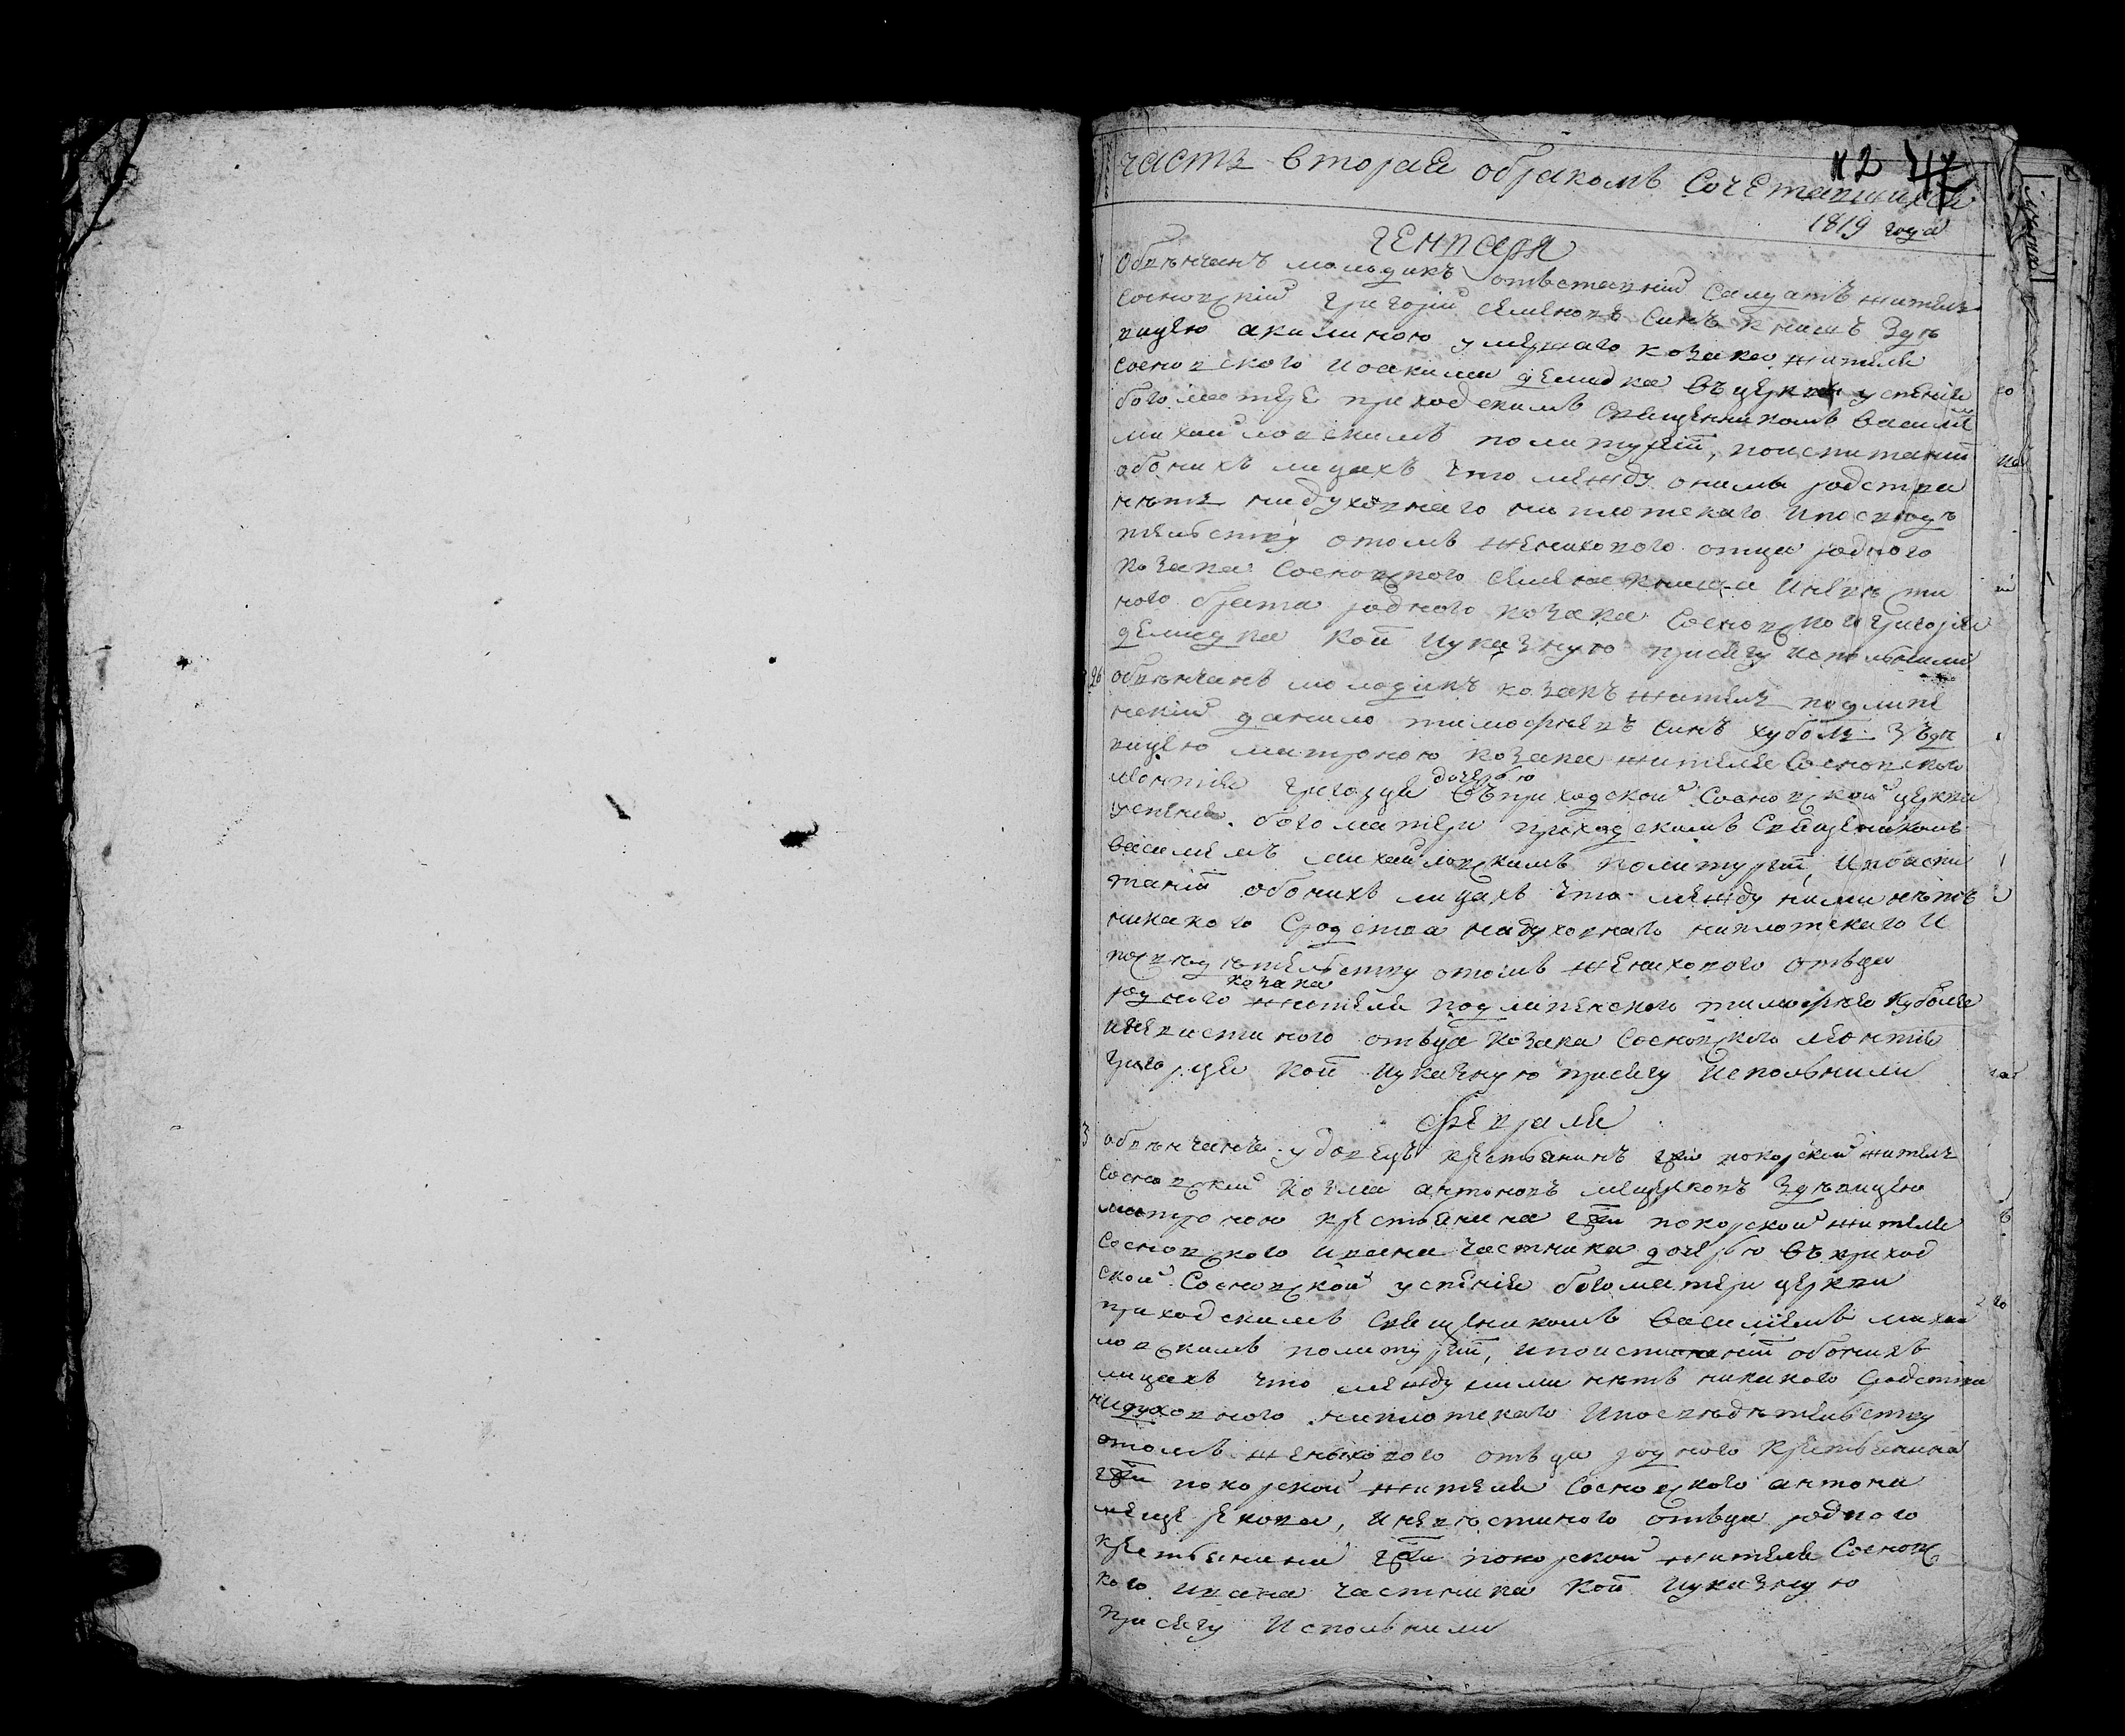 часть вторая обракомъ сочетавшихся
н2 47
1819 года
генваря
обвѣнчанъ молодикъ отвставній салдатъ житель
сосновскій григорій семеновъ синъ книшъ здѣ
вицею акилиною умершаго козака жителя
сосновского иоакима демидка въ церкви успения
богоматере приходскимъ священникомъ василием
михайловскимъ политургіи, поиспитаніи
обонихъ лицахъ что между оними родства
нѣтъ нидуховнаго ниплотскаго ипосвѣдѣ
телству отомъ женихового отца родного
козака сосновского семена книша иневѣсти
ного брата родного козака сосновского григория
демидка кои иуказную присягу исполънили
26 обвѣнчанъ молодикъ козакъ житель подлипе
нскій данило тимофеевъ синъ хуболъ здѣ
вицею матроною козака жителя сосновского
леонтия григорци дочерю въприходской сосновской церкви
успения богоматери приходскимъ священикомъ
василиемъ михайловскимъ политургіи, ипоиспи
таніи обонихъ лицахъ что между ними нѣтъ
никакого сродства нидуховнаго ниплотскаго и
посвѣдѣтелству отомъ женихового отвца
родного козака жителя подлипенского тимофея хубола
иневистиного отвца козака сосновского леонтия
григорци кои иуказную присягу исполънили
февраля
3 обвѣнчанъ удовецъ крестьянинъ гжи покорской житель
сосновскій козма антоновъ мещерковъ здѣвицею
матроною крестьянина гжи покорской жителя
сосновского ивана частника дочерю въприход
ской сосновской успения богоматери церкви
приходскимъ священикомъ василиемъ михаи
ловскимъ политургіи, ипоиспитаніи обонихъ
лицахъ что между ними нѣтъ никакого сродства
нидуховного ниплотскаго ипосвѣдѣтелству
отомъ женихового отвца родного крестьянина
гжи покорской жителя сосновского антона
мещерекова, иневѣстиного отвца родного
крестьянина гжи покорской жителя соснов
кого ивана частника кои иуказную
присягу исполънили